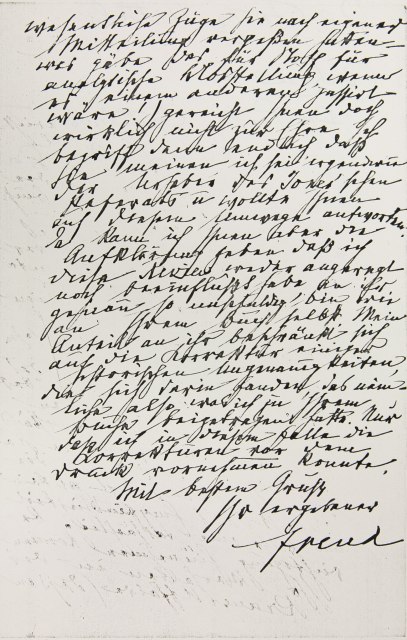 wesentliche Züge sie nach eigener
Mitteilung vergessen hatten –
was gäbe das für Stoff für
analytische Bloßstellung wenn
es einem anderen passirt
wäre, gereicht Ihnen doch
wirklich nicht zur Ehre. Ich
begriff dann auch daß
Sie meinen ich sei irgendwie
der Urheber des Jones'schen
Referats u wollte Ihnen
auf diesem Umwege antworten.
Da kann ich Ihnen aber die
Aufklärung geben daß ich
diese weder angeregt
noch beeinflußt habe an ihr
genau so unschuldig bin wie
an Ihrem Buch selbst. Mein
Anteil an ihr beschränkt sich
auf die Korrektur einiger
historischen Ungenauigkeiten,
die sich darin fanden, das näm-
liche also was ich zu Ihrem
Buche beigetragen hatte. Nur
daß ich in diesem Falle die
Korrekturen vor dem
Druck vornehmen konnte.
Mit bestem Gruß
Ihr ergebener
Freud